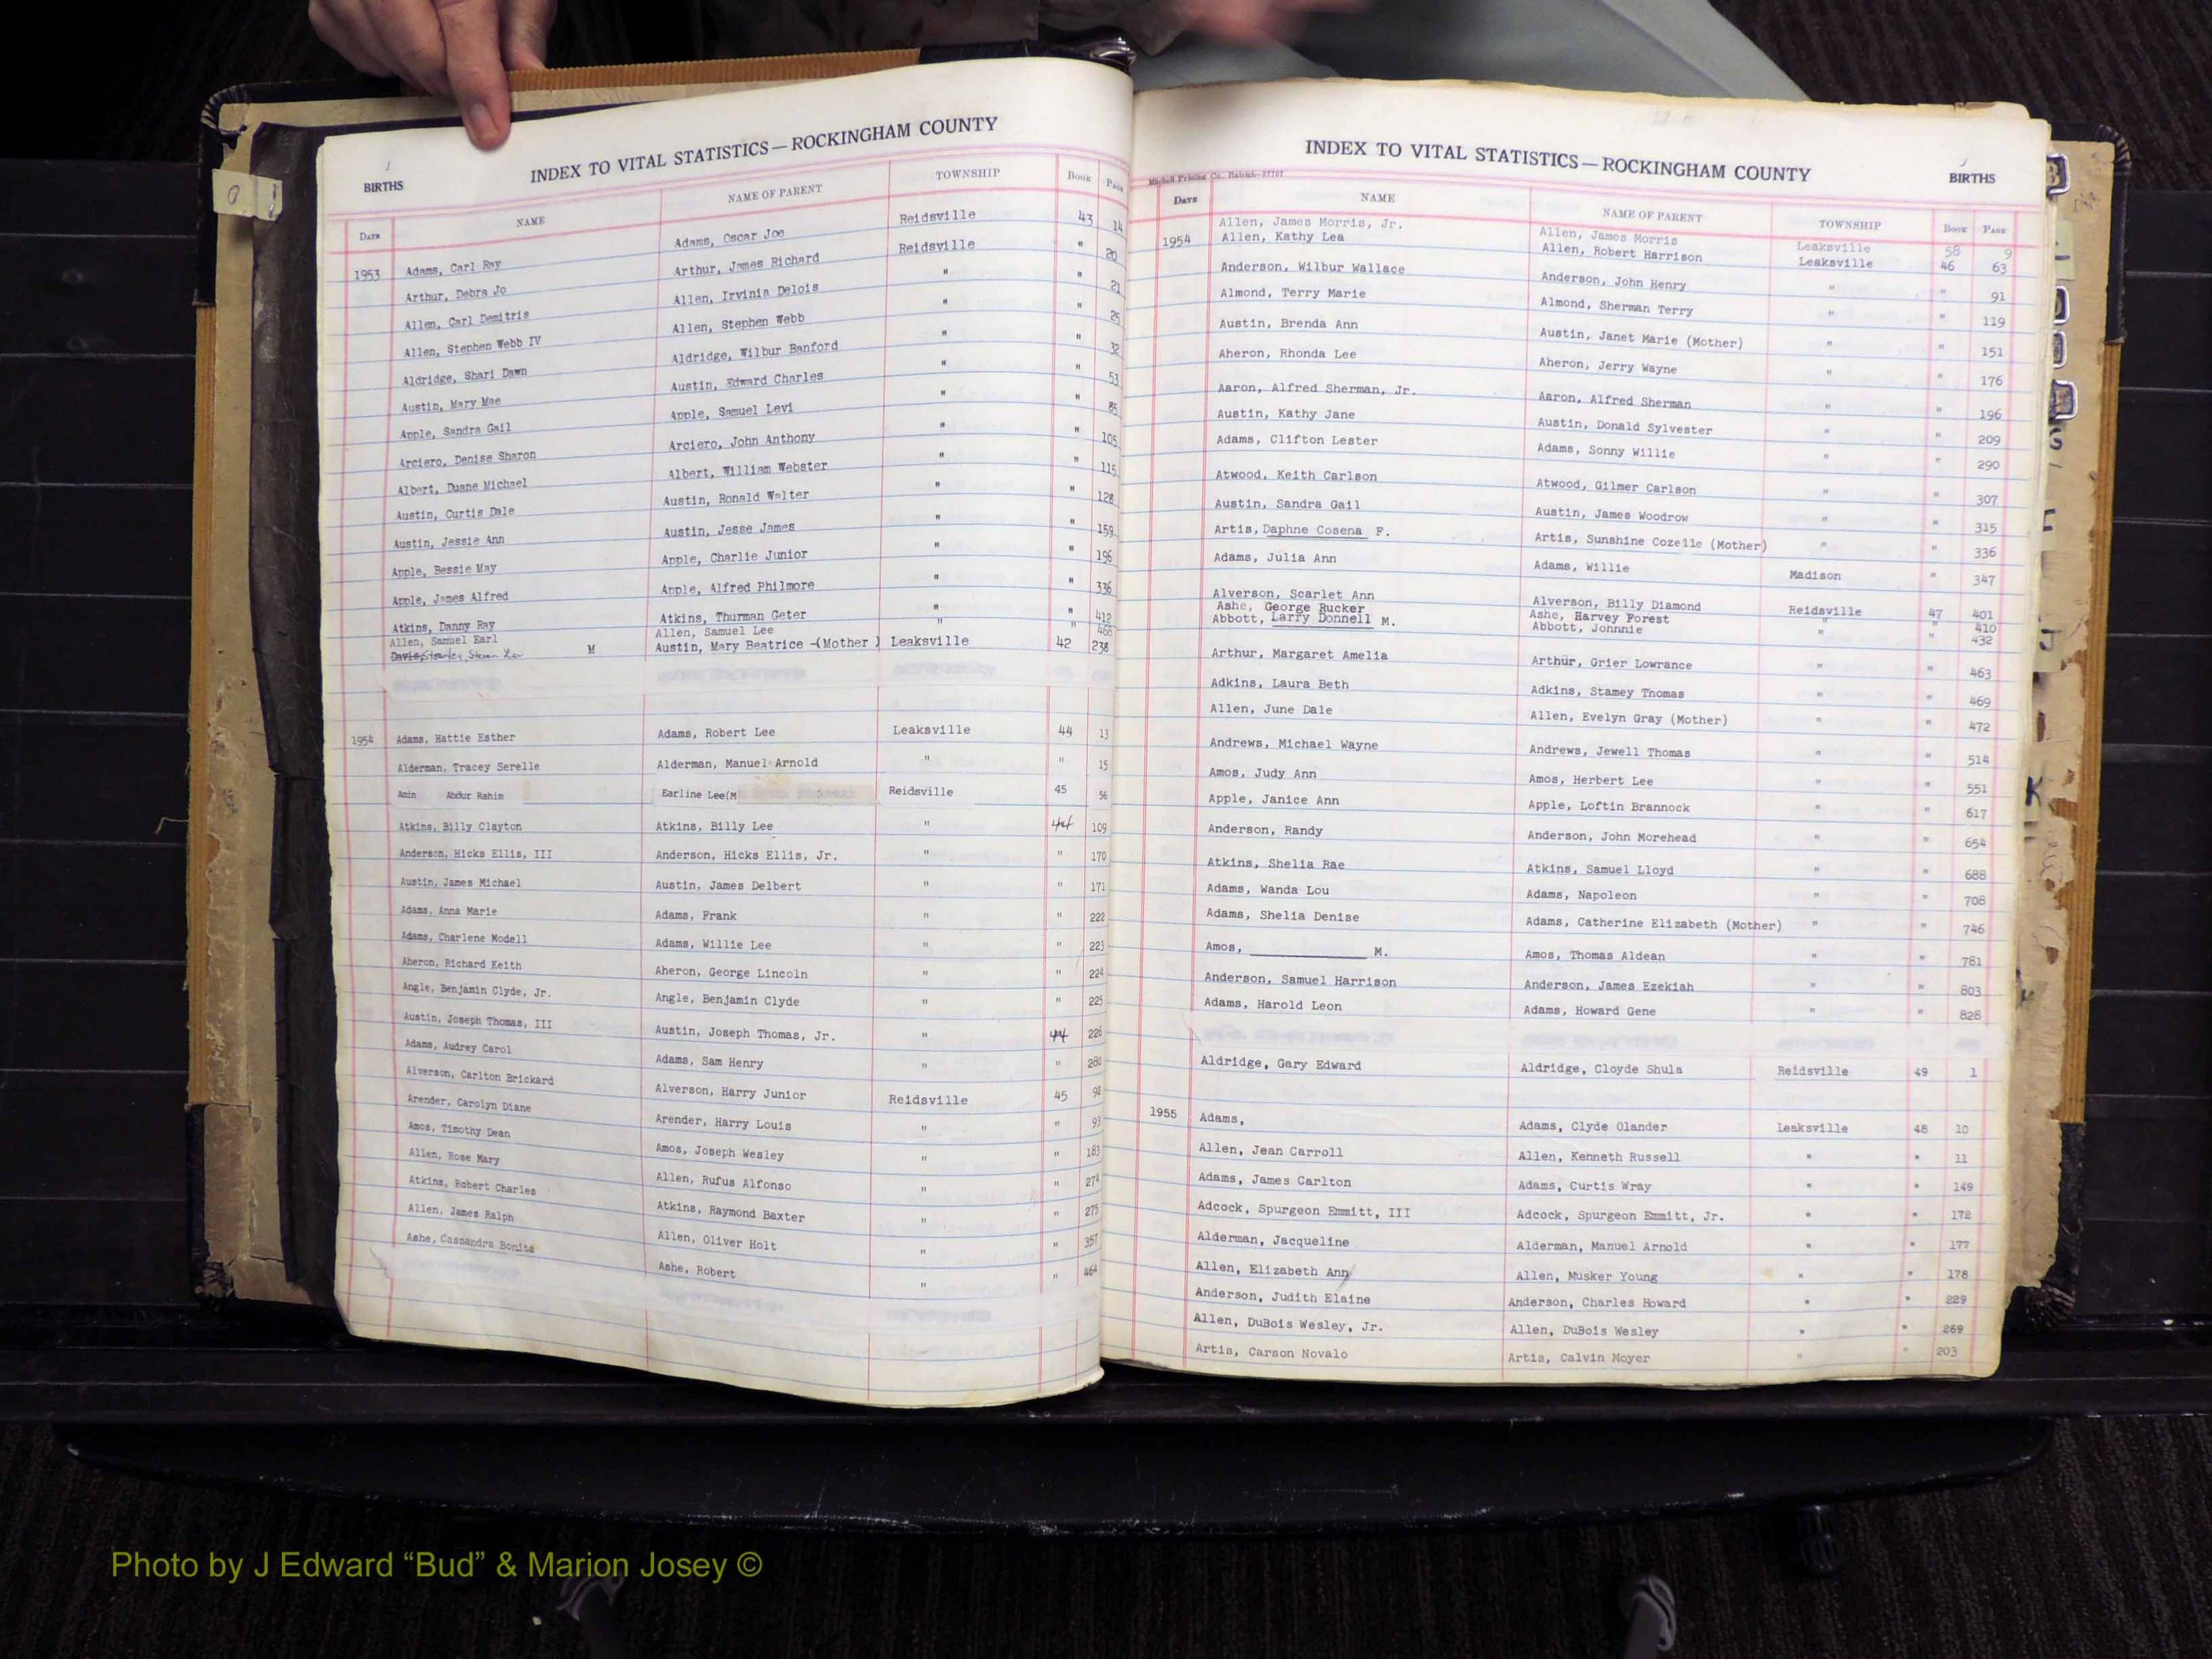 INDEX TO VITAL STATISTICS—ROCKINGHAM COUNTY
BIRTHS
DATE NAME NAME OF PARENT TOWNSHIP BOOK PAGE
1953 Adams, Carl Ray Adams, Oscar Joe Reidsville 43 14
Arthur, Debra Jo Arthur, James Richard Reidsville " 20
Allen, Carl Demitris Allen, Irvinia Delois " " 21
Allen, Stephen Webb IV Allen, Stephen Webb " " 25
Aldridge, Shari Dawn Aldridge, Wilbur Banford " " 32
Austin, Mary Mae Austin, Edward Charles " " 53
Apple, Sandra Gail Apple, Samuel Levi " " 85
Arciero, Denise Sharon Arciero, John Anthony " " 105
Albert, Duane Michael Albert, William Webster " " 115
Austin, Curtis Dale Austin, Ronald Walter " " 128
Austin, Jessie Ann Austin, Jesse James " " 159
Apple, Bessie May Apple, Charlie Junior " " 196
Apple, James Alfred Apple, Alfred Philmore " " 336
Atkins, Danny Ray Atkins, Thurman Geter " " 412
Allen, Samuel Earl Allen, Samuel Lee " " 468
Davis, Stanley, Steven Lee M Austin, Mary Beatrice -(Mother ) Leaksville 42 238
1954 Adams, Hattie Esther Adams, Robert Lee Leaksville 44 13
Alderman, Tracey Serelle Alderman, Manuel Arnold " " 15
Amin Abdur Rahim Earline Lee(M Reidsville 45 56
Atkins, Billy Clayton Atkins, Billy Lee " 44 109
Anderson, Hicks Ellis, III Anderson, Hicks Ellis, Jr. " " 170
Austin, James Michael Austin, James Delbert " " 171
Adams, Anna Marie Adams, Frank " " 222
Adams, Charlene Modell Adams, Willie Lee " " 223
Aheron, Richard Keith Aheron, George Lincoln " " 224
Angle, Benjamin Clyde, Jr. Angle, Benjamin Clyde " " 225
Austin, Joseph Thomas, III Austin, Joseph Thomas, Jr. " 44 226
Adams, Audrey Carol Adams, Sam Henry " " 280
Alverson, Carlton Brickard Alverson, Harry Junior Reidsville 45 92
Arender, Carolyn Diane Arender, Harry Louis " " 93
Amos, Timothy Dean Amos, Joseph Wesley " " 183
Allen, Rose Mary Allen, Rufus Alfonso " " 274
Atkins, Robert Charles Atkins, Raymond Baxter " " 275
Allen, James Ralph Allen, Oliver Holt " " 357
Ashe, Cassandra Bonita Ashe, Robert " " 464
INDEX TO VITAL STATISTICS—ROCKINGHAM COUNTY
BIRTHS
Mitchell Printing Co., Raleigh—
DATE NAME NAME OF PARENT TOWNSHIP BOOK PAGE
Allen, James Morris, Jr. Allen, James Morris Leaksville 58 9
1954 Allen, Kathy Lea Allen, Robert Harrison Leaksville 46 63
Anderson, Wilbur Wallace Anderson, John Henry " " 91
Almond, Terry Marie Almond, Sherman Terry " " 119
Austin, Brenda Ann Austin, Janet Marie (Mother) " " 151
Aheron, Rhonda Lee Aheron, Jerry Wayne " " 176
Aaron, Alfred Sherman, Jr. Aaron, Alfred Sherman " " 196
Austin, Kathy Jane Austin, Donald Sylvester " " 209
Adams, Clifton Lester Adams, Sonny Willie " " 290
Atwood, Keith Carlson Atwood, Gilmer Carlson " " 307
Austin, Sandra Gail Austin, James Woodrow " " 315
Artis, Daphne Cosena F. Artis, Sunshine Cozelle (Mother) " " 336
Adams, Julia Ann Adams, Willie Madison " 347
Alverson, Scarlet Ann Alverson, Billy Diamond Reidsville 47 401
Ashe, George Rucker Ashe, Harvey Forest " " 410
Abbott, Larry Donnell M. Abbott, Johnnie " " 432
Arthur, Margaret Amelia Arthur, Grier Lowrance " " 463
Adkins, Laura Beth Adkins, Stamey Thomas " " 469
Allen, June Dale Allen, Evelyn Gray (Mother) " " 472
Andrews, Michael Wayne Andrews, Jewell Thomas " " 514
Amos, Judy Ann Amos, Herbert Lee " " 551
Apple, Janice Ann Apple, Loftin Brannock " " 617
Anderson, Randy Anderson, John Morehead " " 654
Atkins, Shelia Rae Atkins, Samuel Lloyd " " 688
Adams, Wanda Lou Adams, Napoleon " " 708
Adams, Shelia Denise Adams, Catherine Elizabeth (Mother) " " 746
Amos, M. Amos, Thomas Aldean " " 781
Anderson, Samuel Harrison Anderson, James Ezekiah " " 803
Adams, Harold Leon Adams, Howard Gene " " 828
Aldridge, Gary Edward Aldridge, Cloyde Shula Reidsville 49 1
1955 Adams, Adams, Clyde Olander Leaksville 48 10
Allen, Jean Carroll Allen, Kenneth Russell " " 11
Adams, James Carlton Adams, Curtis Wray " " 149
Adcock, Spurgeon Emmitt, III Adcock, Spurgeon Emmitt, Jr. " " 172
Alderman, Jacqueline Alderman, Manuel Arnold " " 177
Allen, Elizabeth Ann Allen, Musker Young " " 178
Anderson, Judith Elaine Anderson, Charles Howard " " 229
Allen, DuBois Wesley, Jr. Allen, DuBois Wesley " " 269
Artis, Carson Novalo Artis, Calvin Moyer " " 203
Photo by J Edward “Bud” & Marion Josey ©